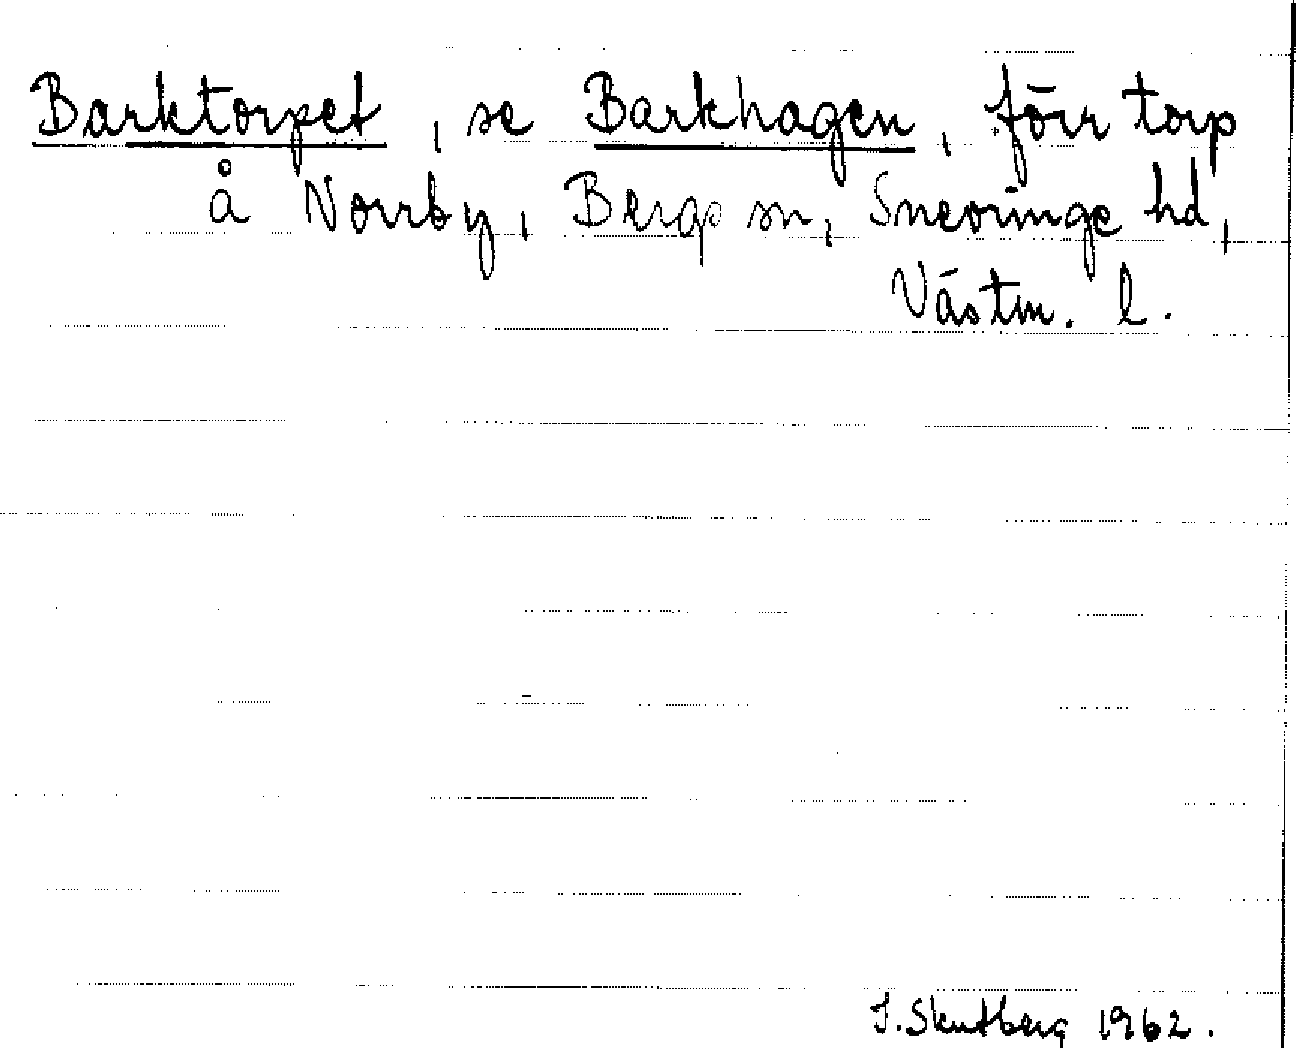 Barktorpet, se Barkhagen, förr torp
å Norrby, Bergs sn, Snevringe hd,
Västm. l.
I. Skutberg 1962.